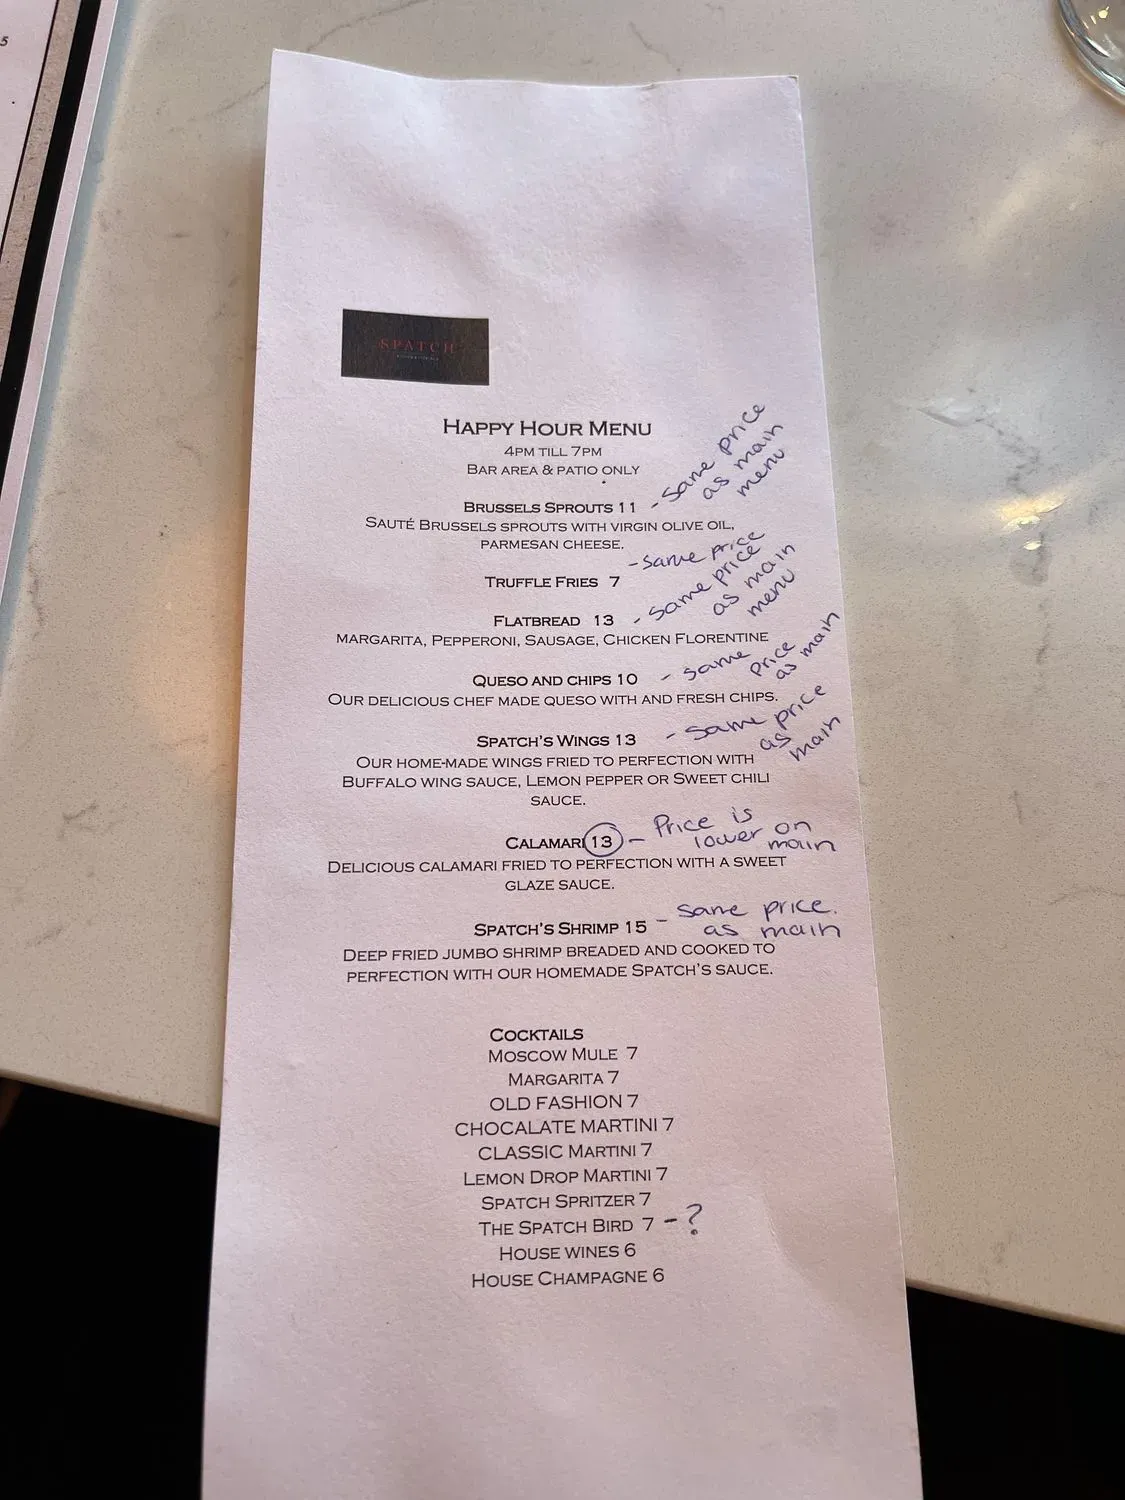 5
SPATCH
HAPPY HOUR MENU
4PM TILL 7PM
BAR AREA & PATIO ONLY
BRUSSELS SPROUTS 11 - same price as main menu
SAUTÉ BRUSSELS SPROUTS WITH VIRGIN OLIVE OIL,
PARMESAN CHEESE.
TRUFFLE FRIES 7 - same price
FLATBREAD 13 - same price as main menu
MARGARITA, PEPPERONI, SAUSAGE, CHICKEN FLORENTINE
QUESO AND CHIPS 10 - same price as main
OUR DELICIOUS CHEF MADE QUESO WITH AND FRESH CHIPS.
SPATCH'S WINGS 13 - same price as main
OUR HOME-MADE WINGS FRIED TO PERFECTION WITH
BUFFALO WING SAUCE, LEMON PEPPER OR SWEET CHILI
SAUCE.
CALAMARI 13 - Price is lower on main
DELICIOUS CALAMARI FRIED TO PERFECTION WITH A SWEET
GLAZE SAUCE.
SPATCH'S SHRIMP 15 - same price. as main
DEEP FRIED JUMBO SHRIMP BREADED AND COOKED TO
PERFECTION WITH OUR HOMEMADE SPATCH'S SAUCE.
COCKTAILS
MOSCOW MULE 7
MARGARITA 7
OLD FASHION 7
CHOCALATE MARTINI 7
CLASSIC MARTINI 7
LEMON DROP MARTINI 7
SPATCH SPRITZER 7
THE SPATCH BIRD 7 - ?
HOUSE WINES 6
HOUSE CHAMPAGNE 6